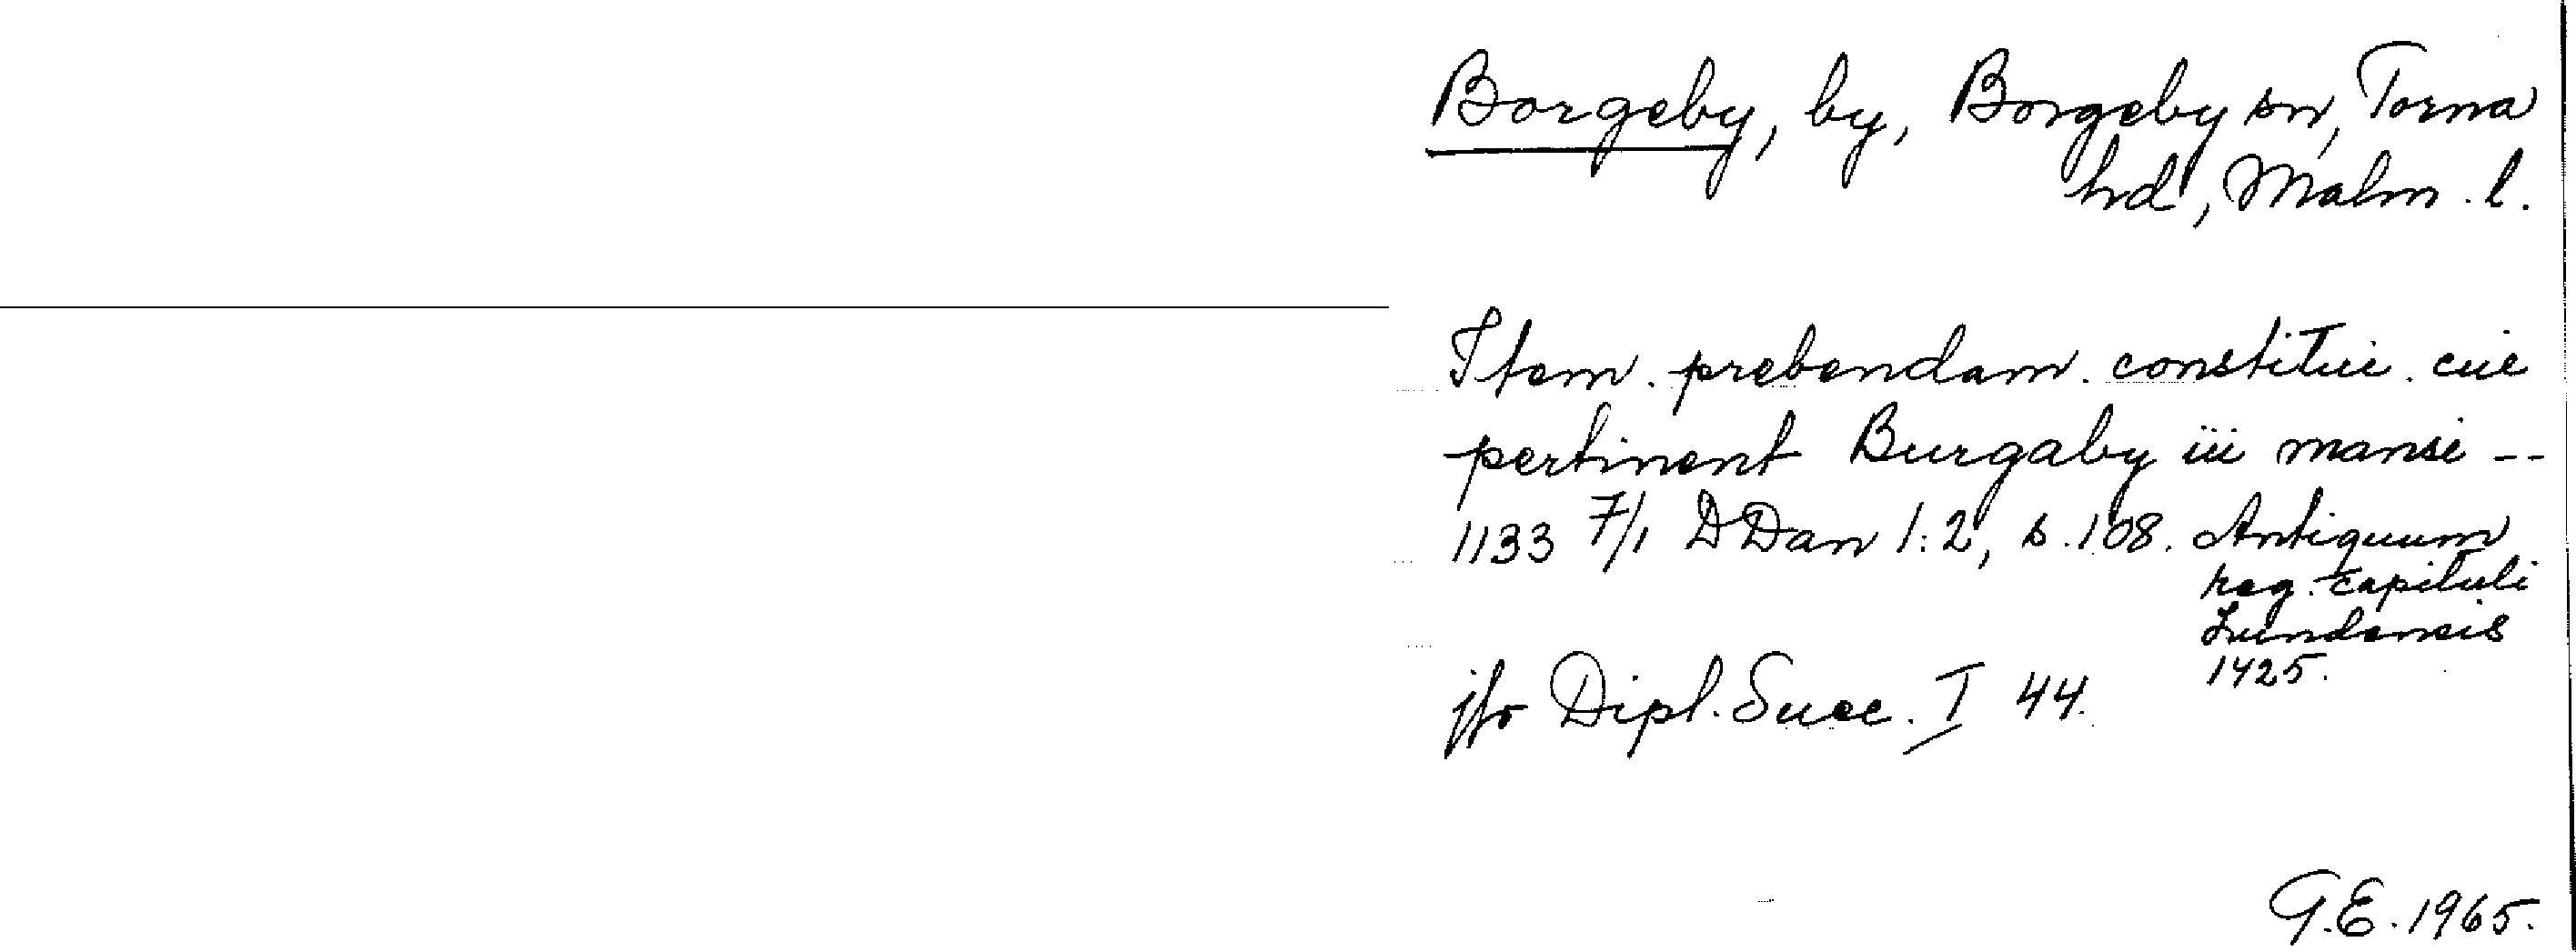 Borgeby, by, Borgeby sn, Torna
hd, Malm. l.
Item. prebendam. constitui. cui
pertinent Burgaby iii mansi --
1133 7/1 DDan 1:2, s. 108. Antiquum
reg. capituli
Lundensis
1425.
jfr Dipl. Suec. I 44.
G.E. 1965.